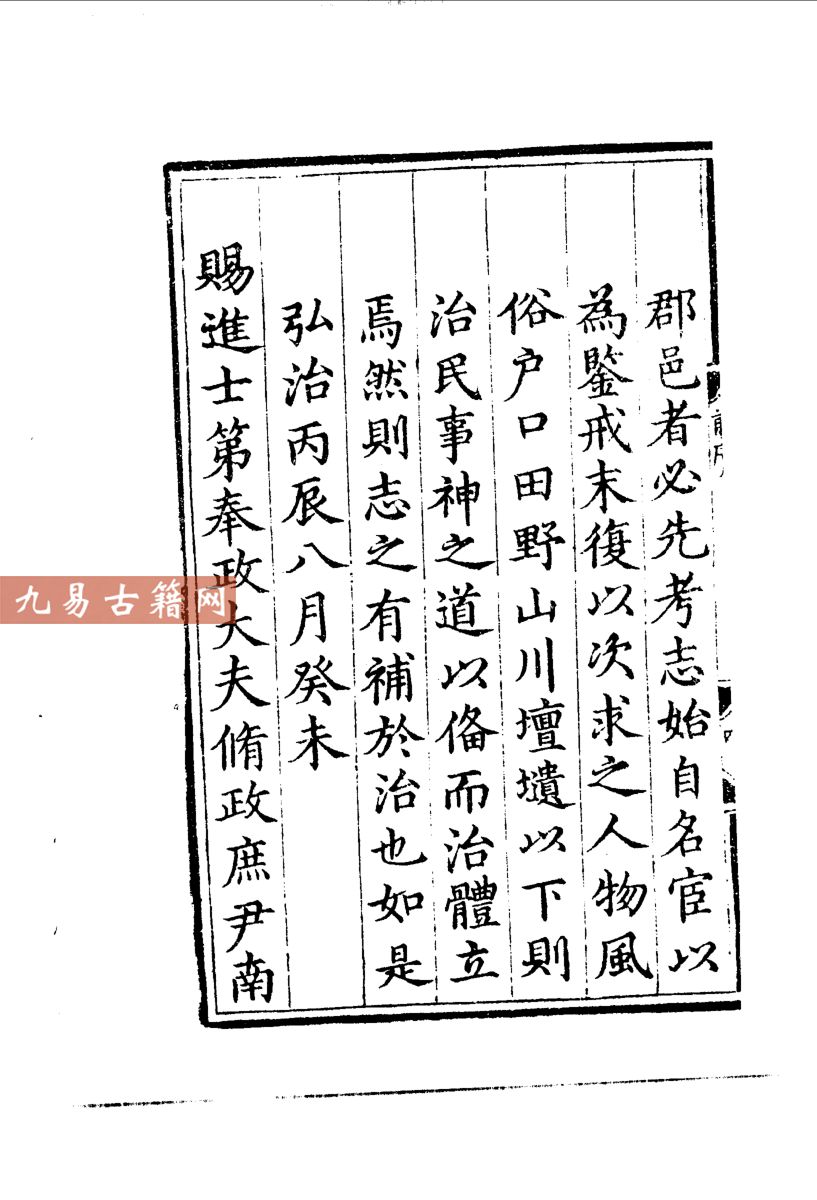 郡邑者必先考志始自名宦以
為鑒戒末復以次求之人物風
俗户口田野山川壇壝以下則
治民事神之道以俻而治體立
焉然則志之有補於治也如是
弘治丙辰八月癸未
賜進士第奉政大夫脩政庶尹南
九易古籍网